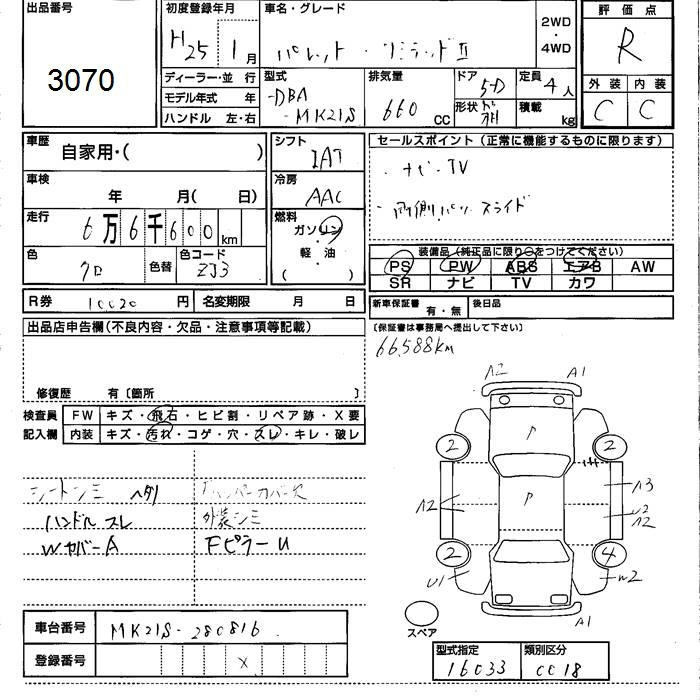 出品番号
3070
初度登録年月
H25 1月
車名・グレード
パレット ・リミテッドⅡ
2WD
・
4WD
評価点
R
外装 内装
C C
ディーラー・並行
モデル年式 年
ハンドル 左・右
型式
-DBA
-MK21S
排気量
660
CC
ドア
5D
形状
定員
4人
積載
kg
車歴
自家用・( )
車検
年 月( 日)
走行
6万6千600km
色
クロ
色替
色コード
ZJ3
シフト
IAT
冷房
AAC
燃料
ガソリン
・
軽・油
( )
セールスポイント(正常に機能するものに限ります)
・ナビ・TV
・両側パワースライド
装備品(純正品に限り○をつけてください)
PS PW ABS エアB AW
SR ナビ TV カワ
R券 10020円 名変期限 月 日
新車保証書 有・無 後日品
(保証書は事務局へ提出して下さい)
66,588km
出品店申告欄(不良内容・欠品・注意事項等記載)
修復歴 有〔箇所 〕
検査員
記入欄
FW キズ・飛石・ヒビ割・リペア跡・X要
内装 キズ・汚れ・コゲ・穴・スレ・キレ・破レ
シートシミ ヘタリ
ハンドルスレ
WカバーA
バンパーカバー欠
外装シミ
FピラーU
A2 A1
2 2
A2
A3
U2
A2
2 4
U1
W2
A1
スペア
車台番号 MK21S-280816
登録番号 X
型式指定 16033
類別区分 0018